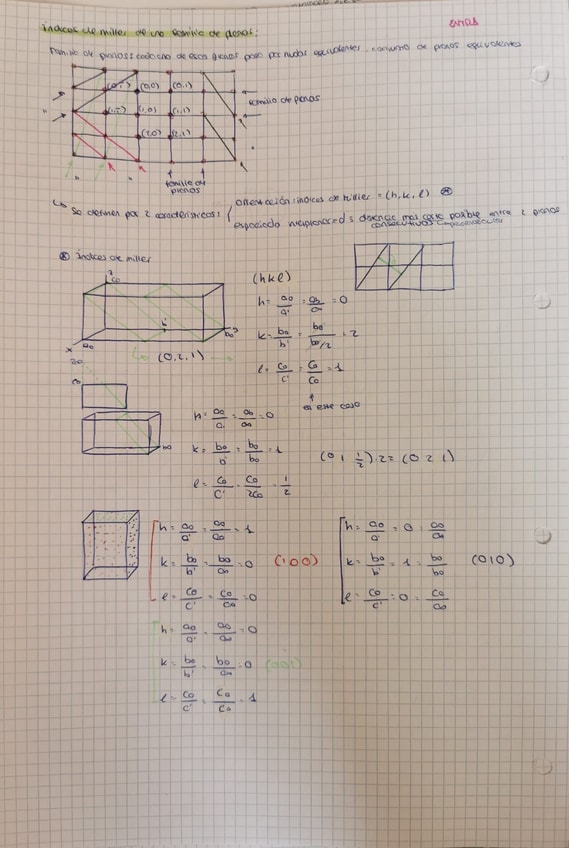 Índices de miller de una familia de planos:
Familia de planos: cada uno de esos planos pasa por nudos equivalentes. conjunto de planos equivalentes
(0,0) (0,1)
(1,0) (1,1)
(2,0) (2,1)
familia de planos
familia de planos
↳ Se definen por 2 características:
orientación: índices de miller = (h, k, l) *
espaciado interplanar: d distancia más corta posible entre 2 planos consecutivos
* índices de miller
(h k l)
h = a0/a' = a0/∞ = 0
k = b0/b' = b0/(b0/2) = 2
l = c0/c' = c0/c0 = 1
↑
en este caso
z
c0
b'
b0
x a0
(0, 2, 1)
2c0
c0
b0
h = a0/a' = a0/∞ = 0
k = b0/b' = b0/b0 = 1
l = c0/c' = c0/2c0 = 1/2
(0 1 1/2) · 2 = (0 2 1)
h = a0/a' = a0/a0 = 1
k = b0/b' = b0/∞ = 0 (100)
l = c0/c' = c0/∞ = 0
h = a0/a' = 0 = a0/∞
k = b0/b' = 1 = b0/b0 (010)
l = c0/c' = 0 = c0/∞
h = a0/a' = a0/∞ = 0
k = b0/b' = b0/∞ = 0 (001)
l = c0/c' = c0/c0 = 1